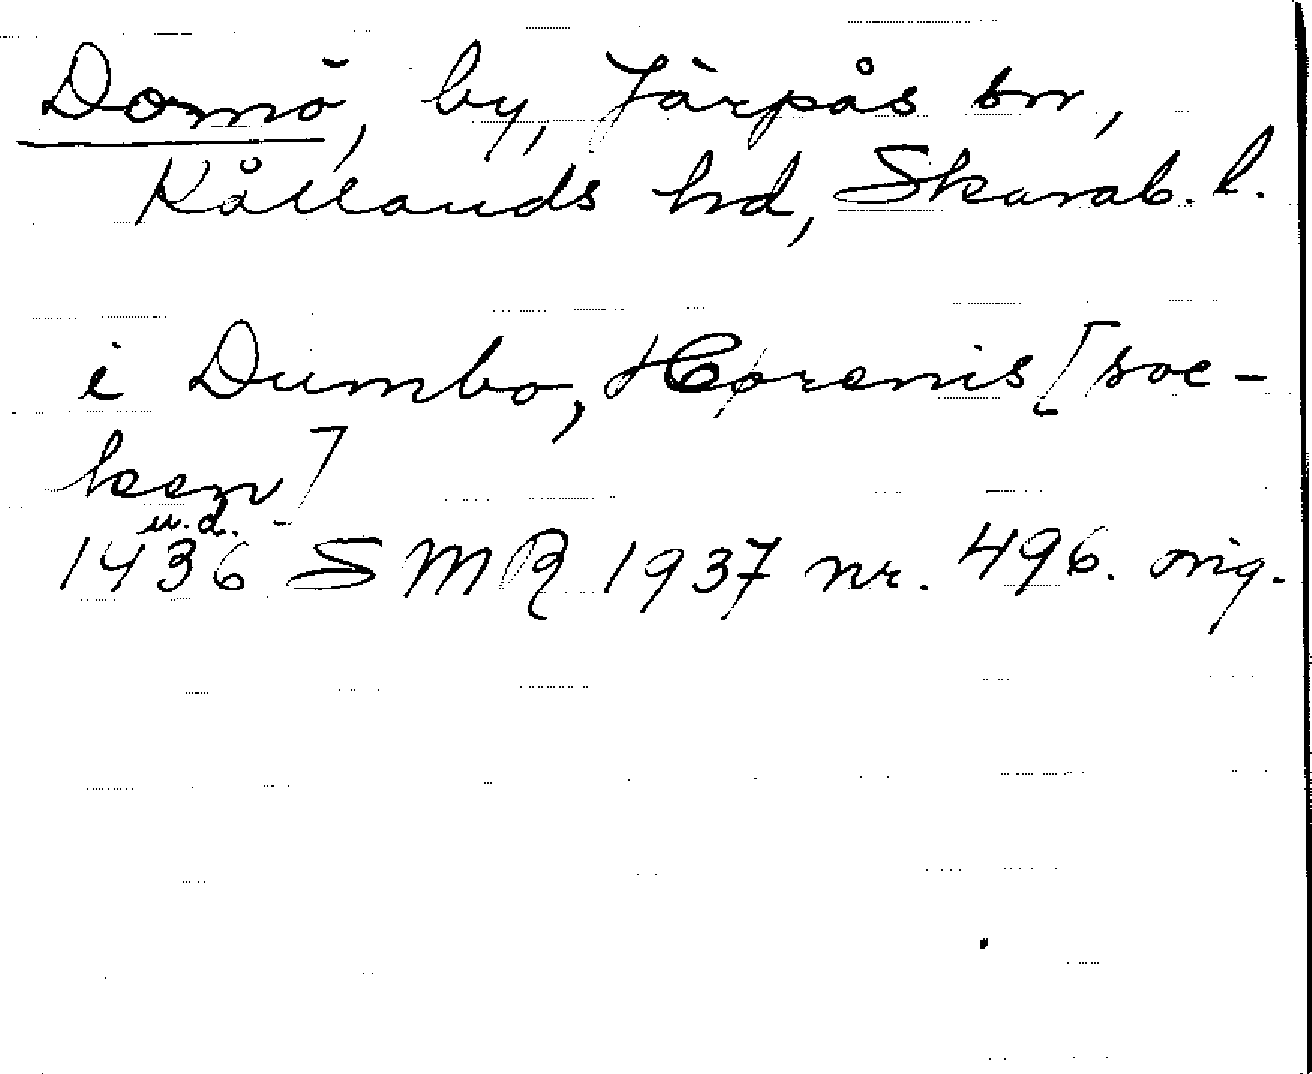 Domö, by, Järpås sn,
Kållands hd, Skarab. l.
i Dumbo,
[soc-
ken]
u.d.
1436 SMR 1937 nr. 496. orig.